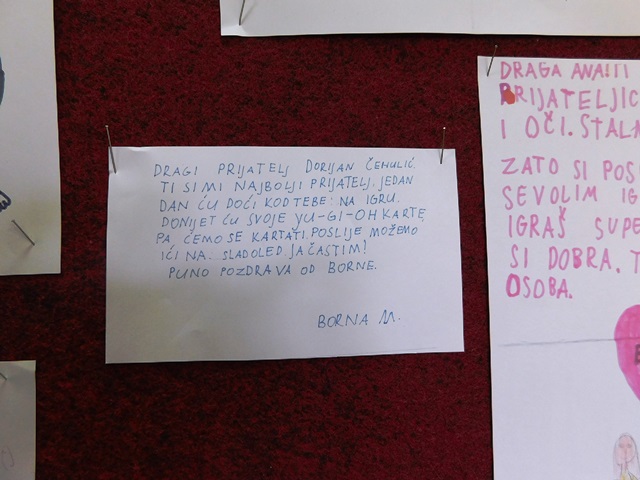 DRAGI PRIJATELJ DORIJAN ČEHULIĆ.
TI SI MI NAJBOLJI PRIJATELJ. JEDAN
DAN ĆU DOĆI KOD TEBE. NA IGRU.
DONIJET ĆU SVOJE YU-GI-OH KARTE,
PA ĆEMO SE KARTATI. POSLIJE MOŽEMO
IĆI NA. SLADOLED. JA ČASTIM!
PUNO POZDRAVA OD BORNE.
BORNA M.
DRAGA ANA!!!
PRIJATELJIC
I OČI. STALN
ZATO SI POS
SEVOLIM IG
IGRAŠ SUPE
SI DOBRA. T
OSOBA.